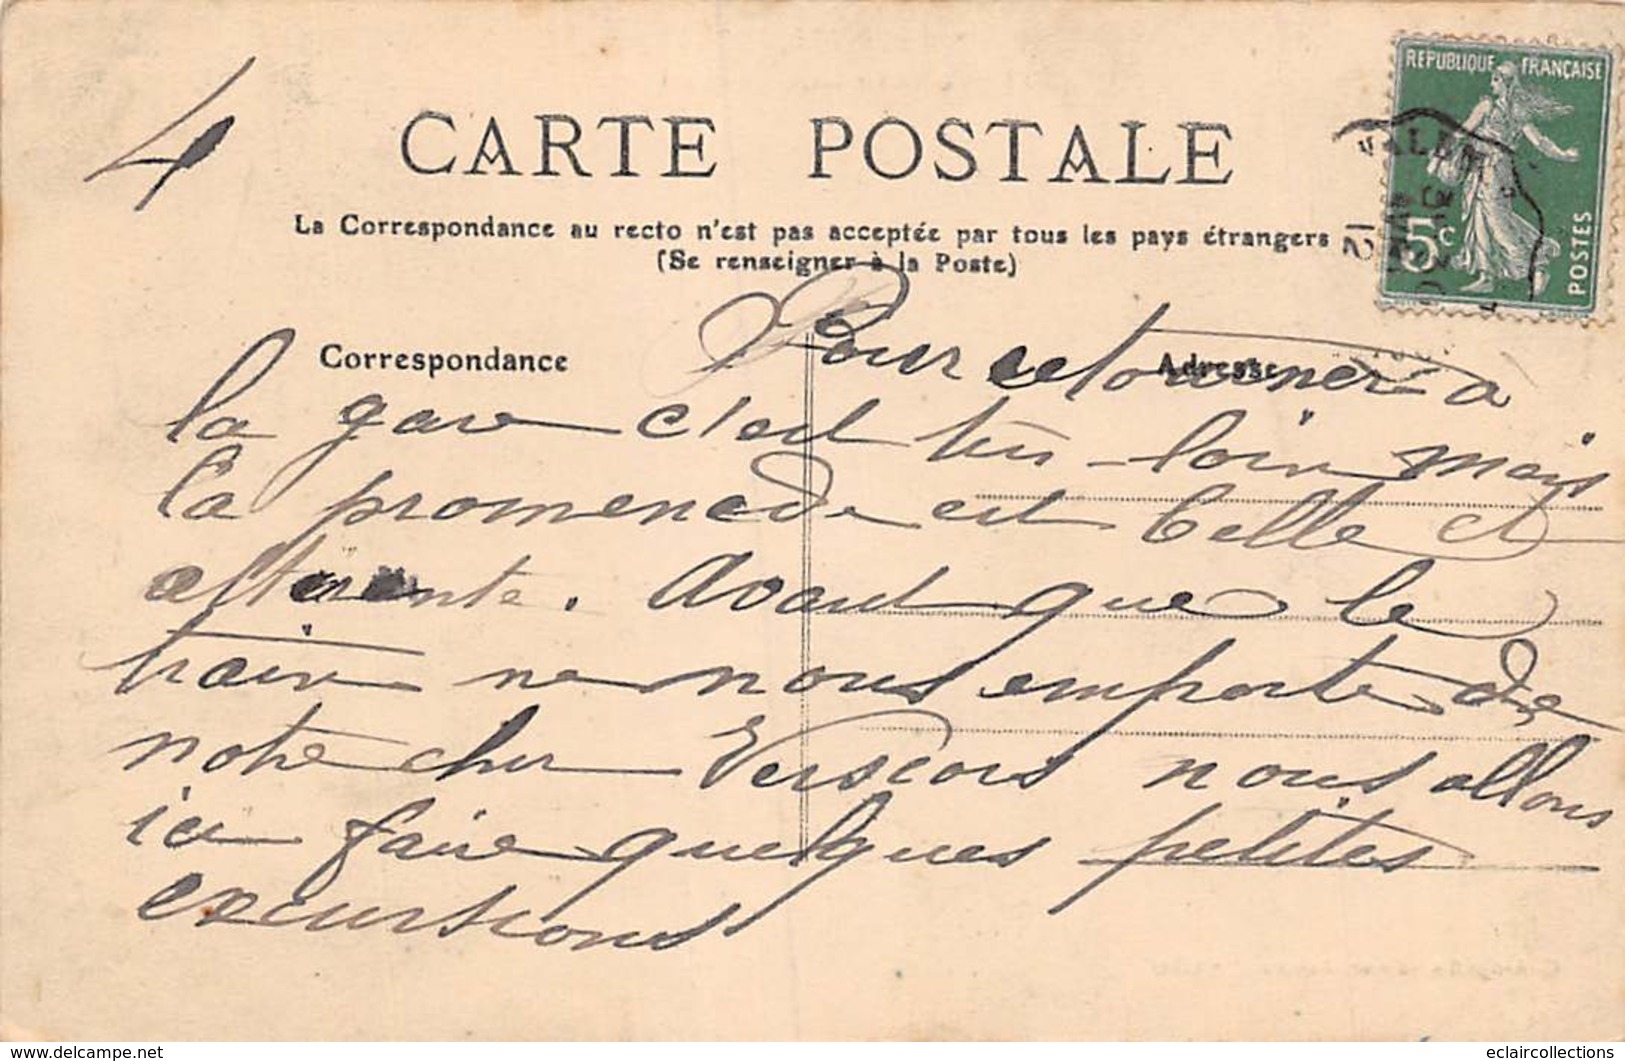 4
CARTE POSTALE
La Correspondance au recto n'est pas acceptée par tous les pays étrangers
(Se renseigner à la Poste)
REPUBLIQUE FRANÇAISE
5c
POSTES
VALEN
12
Correspondance
Adresse
Pour retourner a
la gare c'est très loin mais
la promenade est belle et
attirante. Avant que le
train ne nous emporte de
notre cher Vercors nous allons
ici faire quelques petites
excursions
eclaircollections
www.delcampe.net